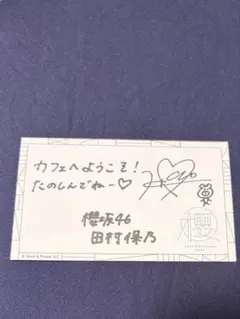 カフェへようこそ!
たのしんでねー♡
櫻坂46
田村保乃